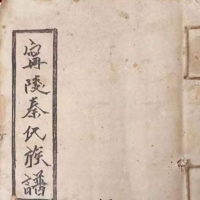 寗陵秦氏族譜